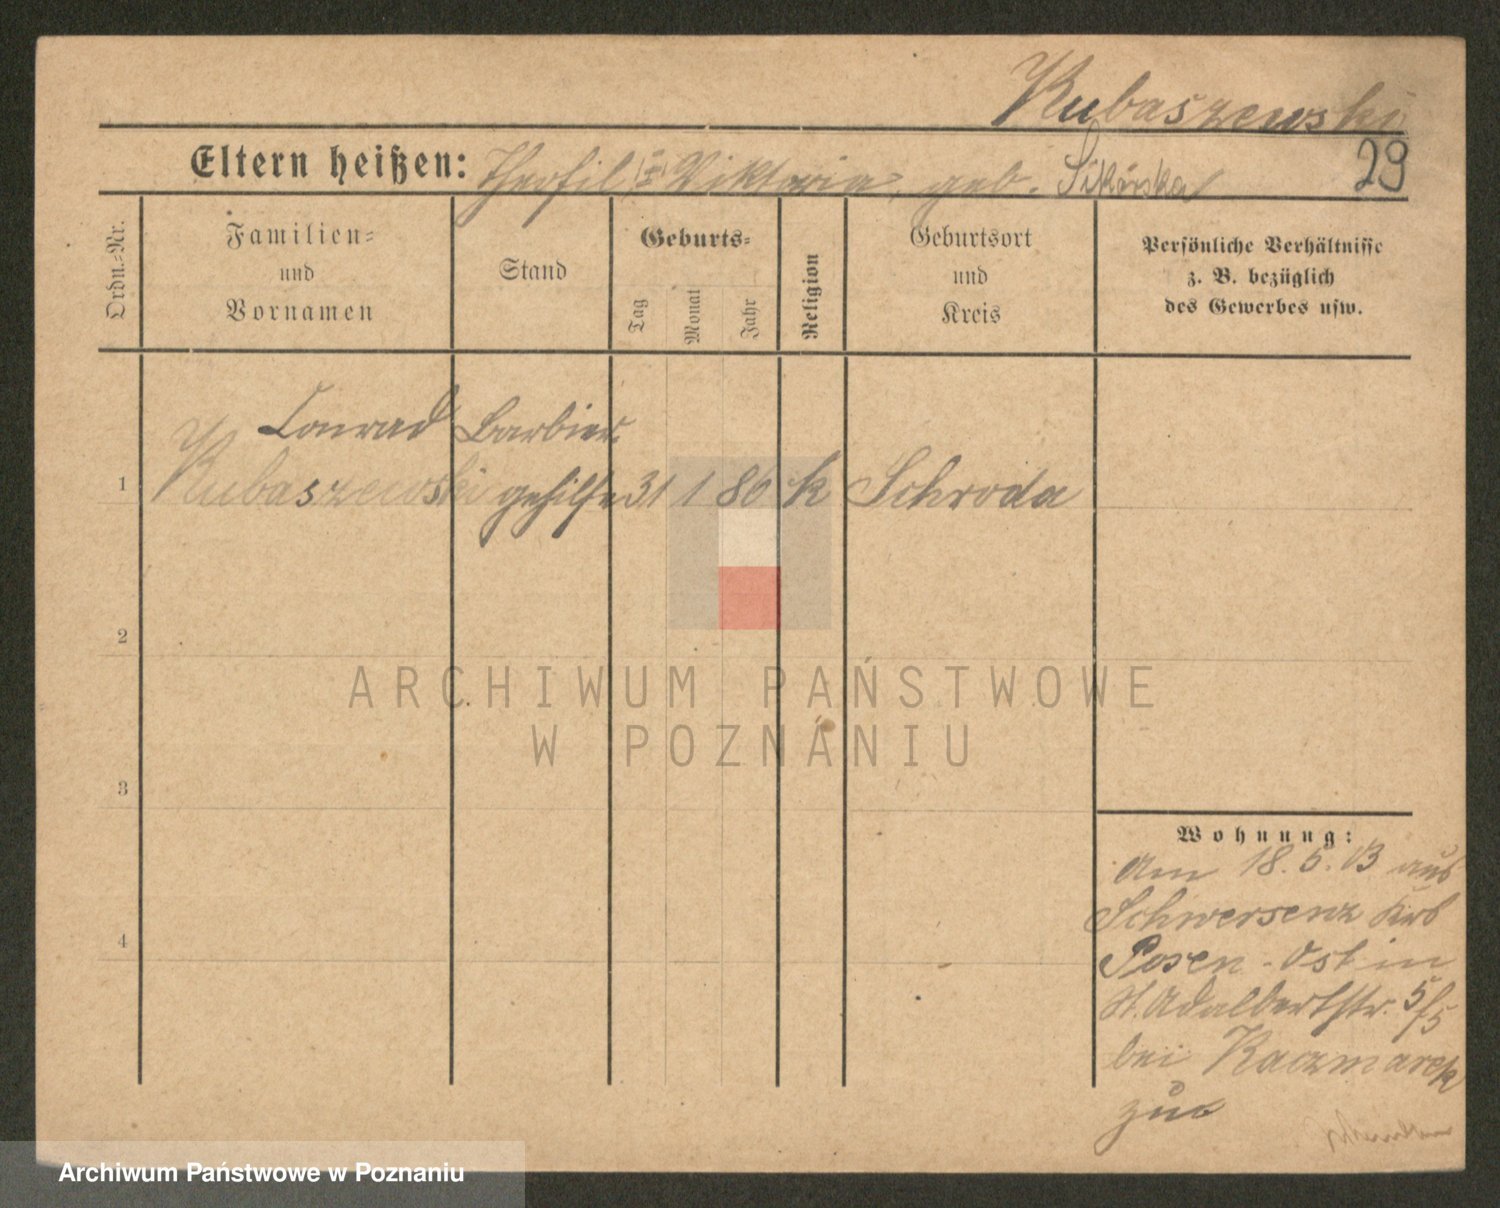 Kubaszewski
Eltern heißen: Theofil u Viktoria, geb. Sikórska
29
Ordn.=Nr.
Familien=
und
Vornamen
Stand
Geburts=
Tag
Monat
Jahr
Religion
Geburtsort
und
Kreis
Persönliche Verhältnisse
z. B. bezüglich
des Gewerbes usw.
Conrad Barbier
1 Kubaszewski gehilfe 31 1 86 k Schroda
2
3
4
Wohnung:
Am 18.5.03 aus
Schwersenz Krs
Posen-Ost in
St. Adalbertstr. 5/5
bei Kaczmarek
zu
ARCHIWUM PAŃSTWOWE
W POZNANIU
Archiwum Państwowe w Poznaniu